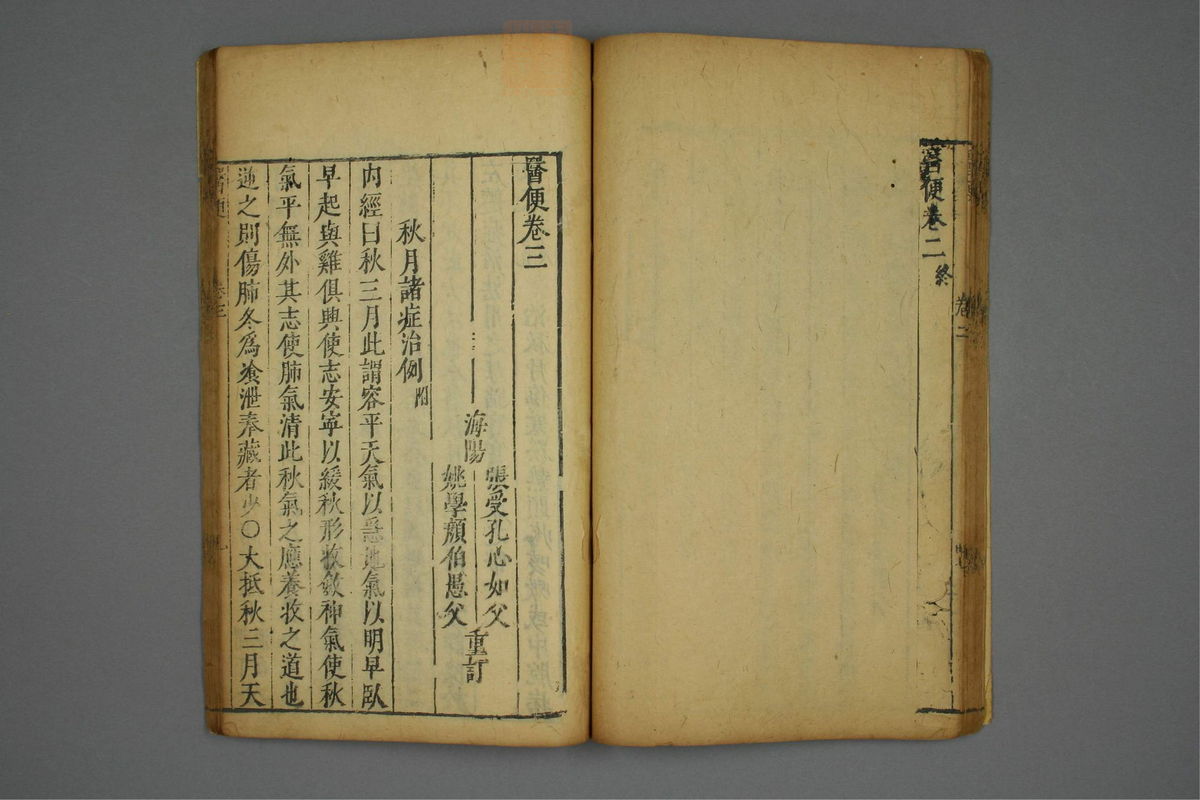 醫便卷二終
卷二
醫便卷三
海陽
張受孔心如父
姚學顏伯愚父
重訂
秋月諸症治例附
內經曰秋三月此謂容平天氣以急地氣以明早臥
早起與雞俱興使志安寧以緩秋形收斂神氣使秋
氣平無外其志使肺氣清此秋氣之應養收之道也
逆之則傷肺冬爲飧泄奉藏者少〇大抵秋三月天
醫便
卷三